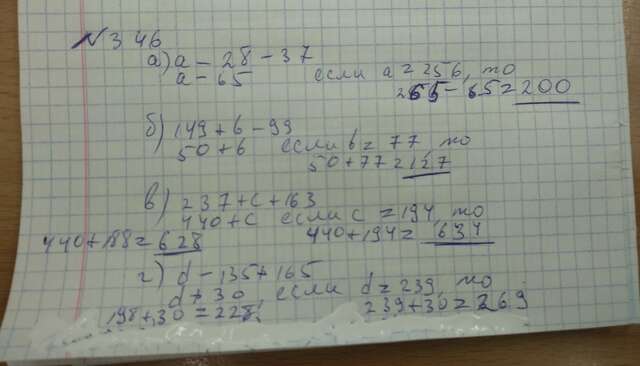 № 346
а) a - 28 - 37
a - 65 если a = 256, то
265 - 65 = 200
б) 149 + b - 99
50 + b если b = 77, то
50 + 77 = 127
в) 237 + c + 163
440 + c если c = 194, то
440 + 188 = 628 440 + 194 = 634
г) d - 135 + 165
d + 30, если d = 239, то
198 + 30 = 228. 239 + 30 = 269